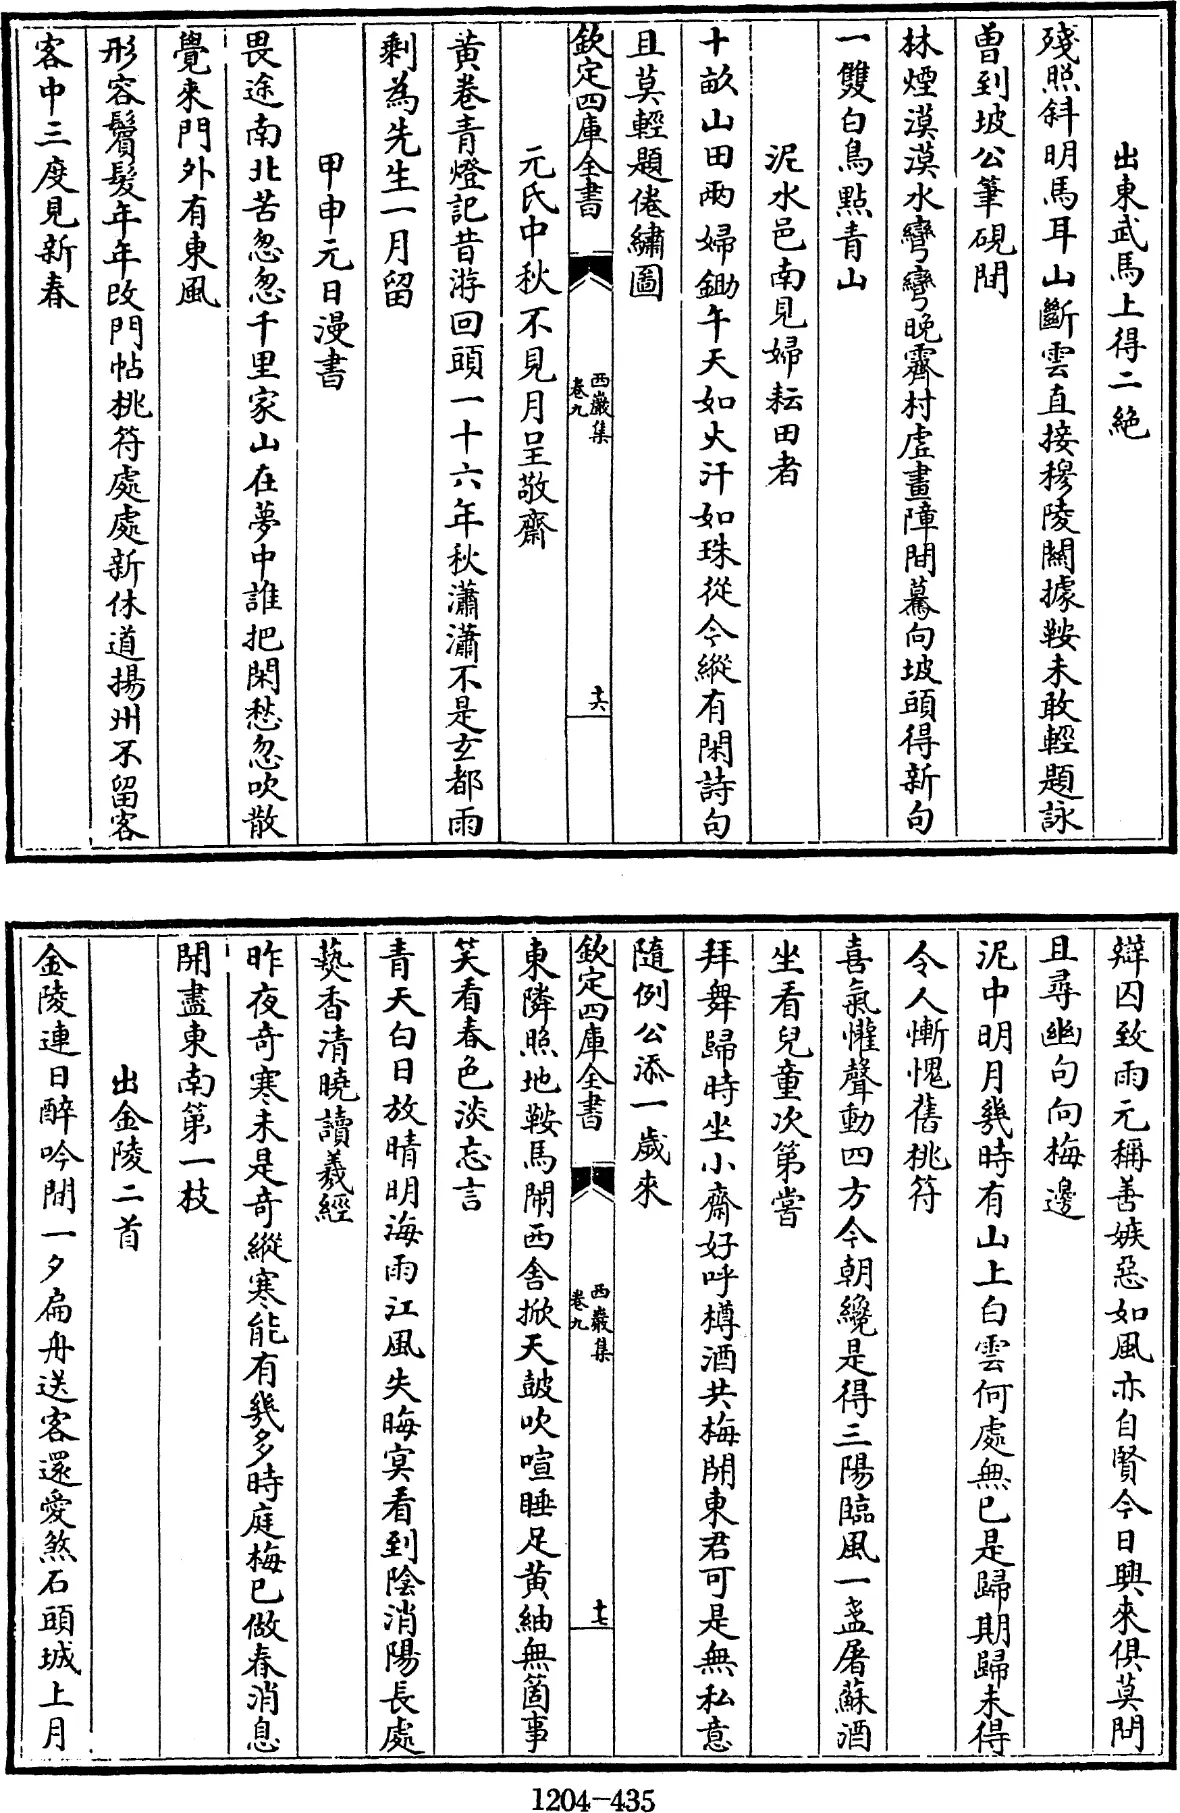 出東武馬上得二絶
殘照斜明馬耳山斷雲直接穆陵關據鞍未敢輕題詠
曾到坡公筆硯間
林煙漠漠水彎彎晚霽村虛畫障間驀向坡頭得新句
一雙白鳥點青山
泥水邑南見婦耘田者
十畝山田兩婦鋤午天如火汗如珠從今縱有閑詩句
且莫輕題倦繡圖
欽定四庫全書
西巖集
卷九
十六
元氏中秋不見月呈敬齋
黃卷青燈記昔游回頭一十六年秋瀟瀟不是玄都雨
剩為先生一月留
甲申元日漫書
畏途南北苦怱怱千里家山在夢中誰把閑愁忽吹散
覺來門外有東風
形容鬢髮年年改門帖桃符處處新休道揚州不留客
客中三度見新春
辯囚致雨元稱善嫉惡如風亦自賢今日興來俱莫問
且尋幽句向梅邊
泥中明月幾時有山上白雲何處無已是歸期歸未得
令人慚愧舊桃符
喜氣懽聲動四方今朝纔是得三陽臨風一盞屠蘇酒
坐看兒童次第嘗
拜舞歸時坐小齋好呼樽酒共梅開東君可是無私意
隨例公添一歲來
欽定四庫全書
西巖集
卷九
十七
東隣照地鞍馬鬧西舍掀天鼓吹喧睡足黃紬無箇事
笑看春色淡忘言
青天白日放晴明海雨江風失晦冥看到陰消陽長處
爇香清曉讀羲經
昨夜奇寒未是奇縱寒能有幾多時庭梅已做春消息
開盡東南第一枝
出金陵二首
金陵連日醉吟間一夕扁舟送客還愛煞石頭城上月
1204-435